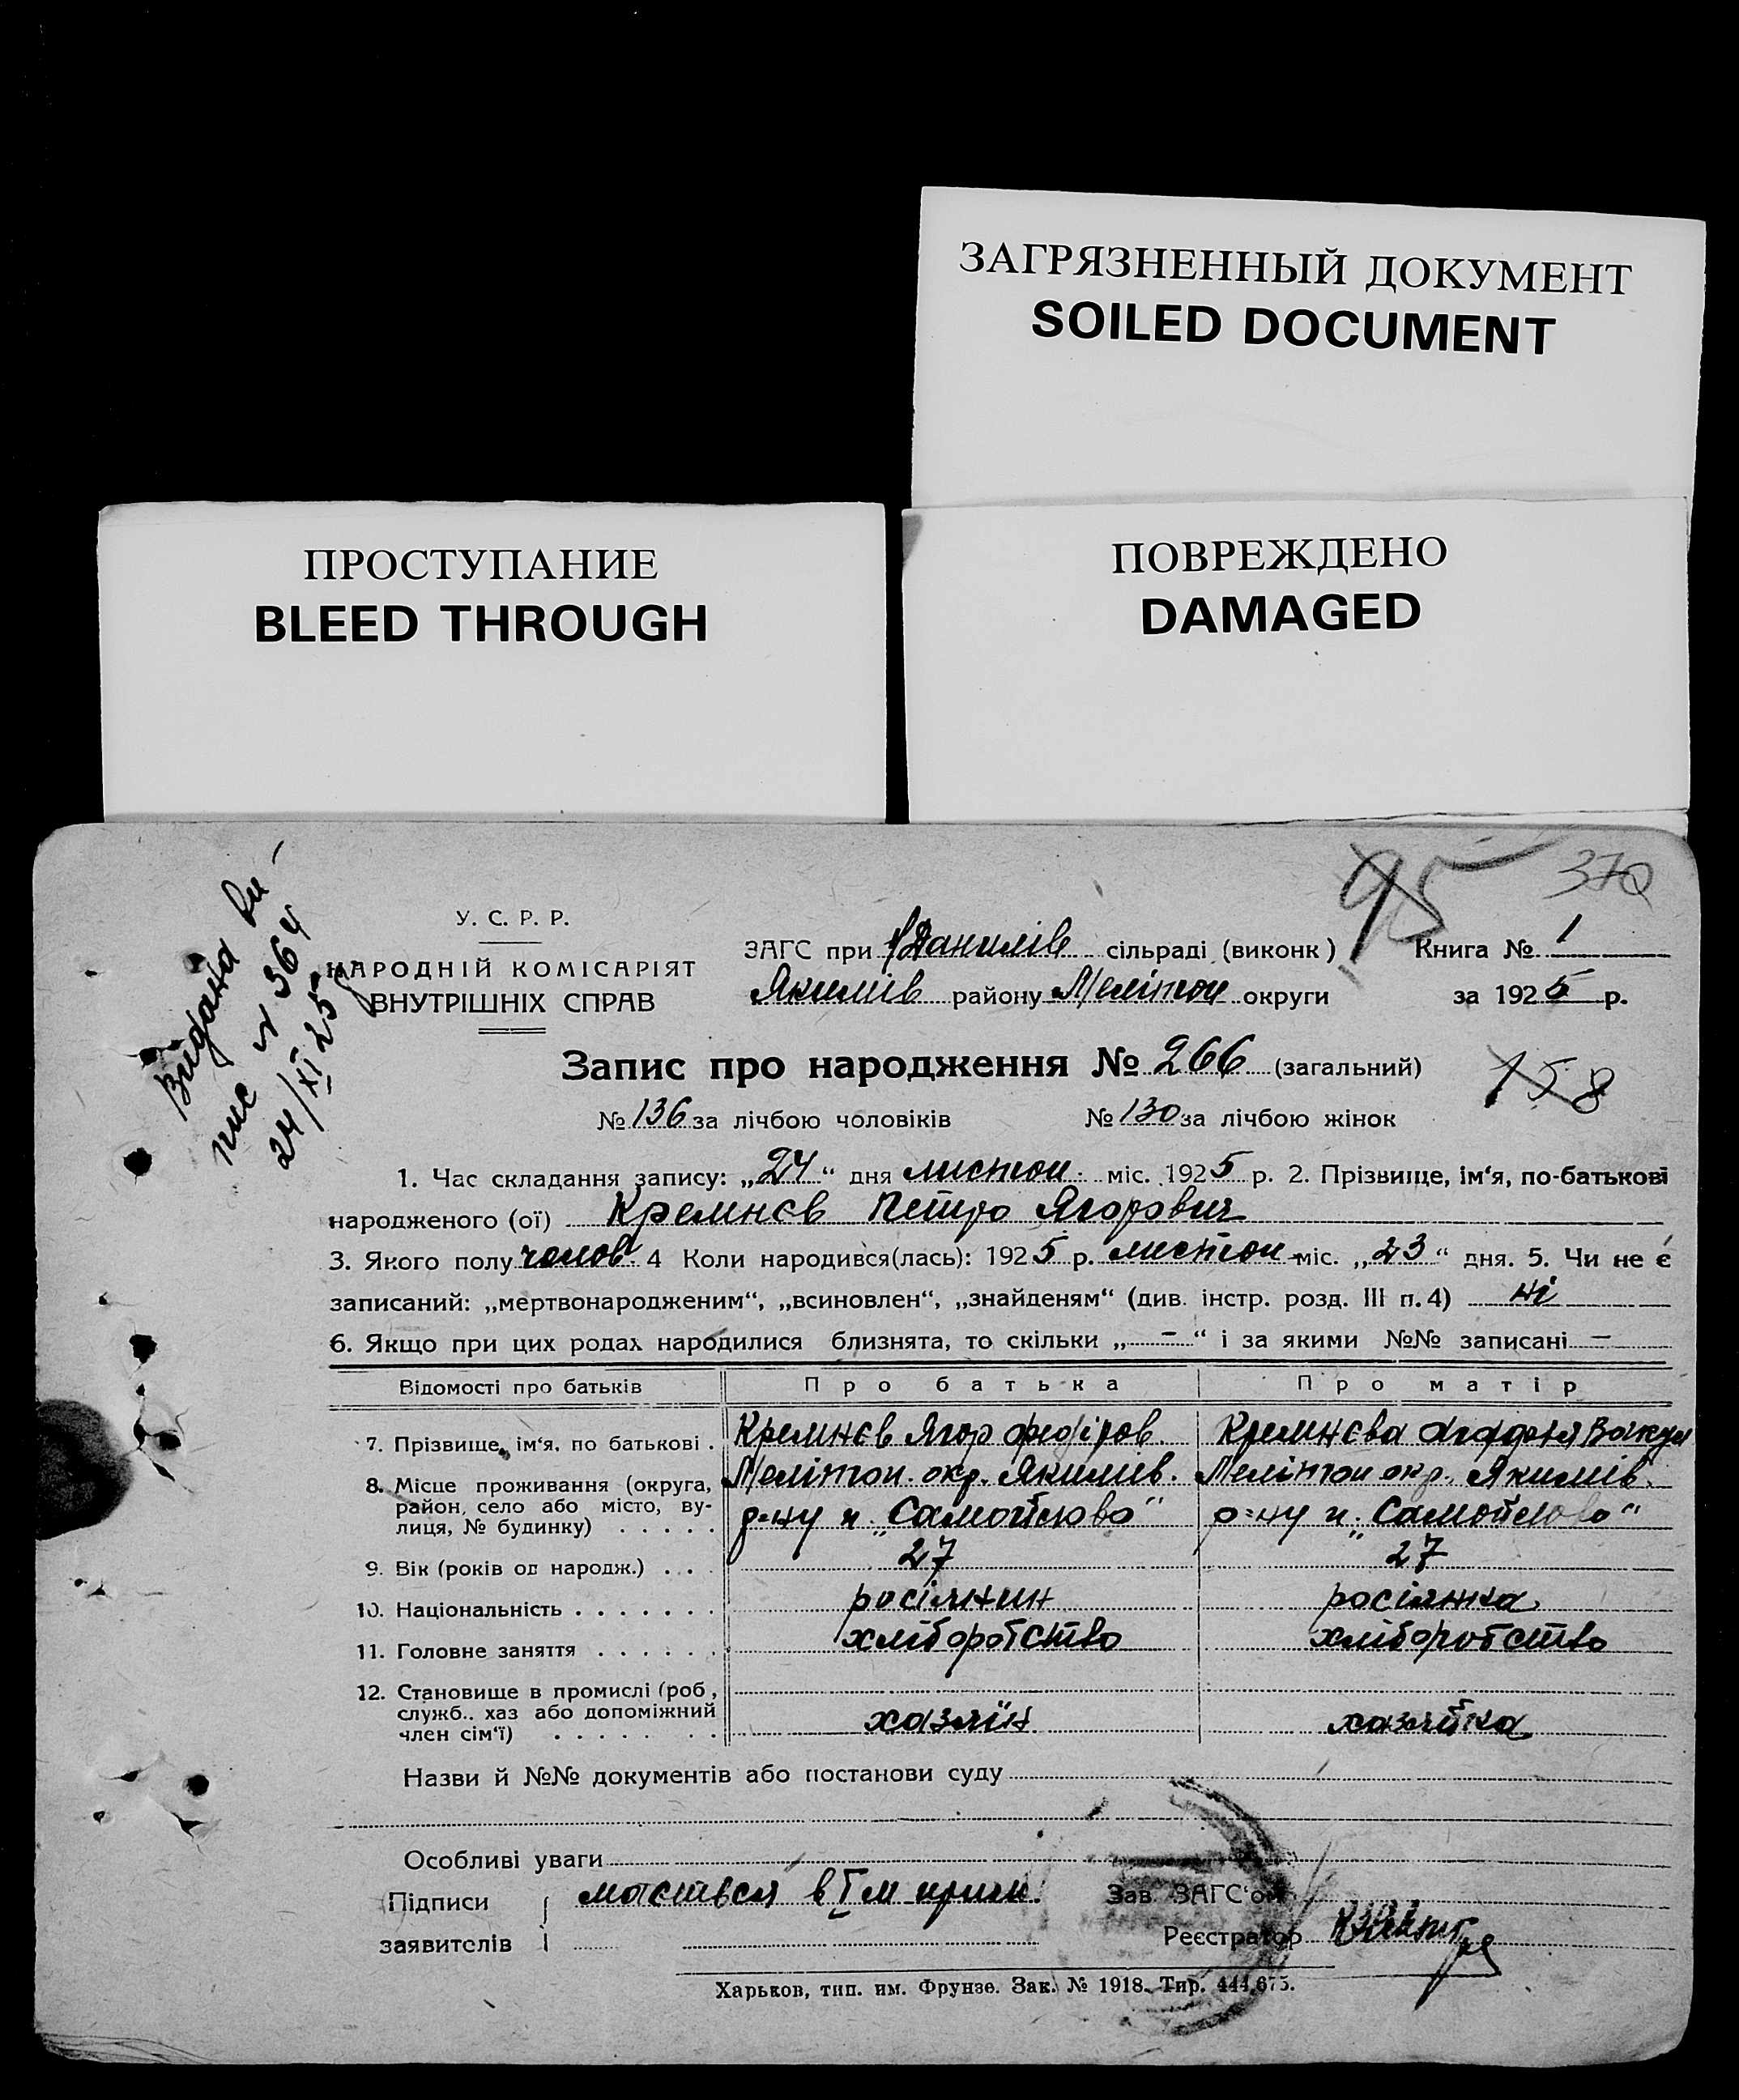 ЗАГРЯЗНЕННЫЙ ДОКУМЕНТ
SOILED DOCUMENT
ПРОСТУПАНИЕ
BLEED THROUGH
ПОВРЕЖДЕНО
DAMAGED
95 370
Видана ви-
пис № 364
24/XI 25
У. С. Р. Р.
НАРОДНІЙ КОМІСАРІЯТ
ВНУТРІШНІХ СПРАВ
ЗАГС при Данилів сільраді (виконк) Книга № 1
Якимів району Мелітоп округи за 1925 р.
Запис про народження № 266 (загальний)
158
№ 136 за лічбою чоловіків № 130 за лічбою жінок
1. Час складання запису: „24“ дня листоп. міс. 1925 р. 2. Прізвище, ім‘я, по-батькові
народженого (ої) Кремнєв Петро Ягорович
3. Якого полу чолов. 4 Коли народився(лась): 1925 р. листоп міс. „23“ дня. 5. Чи не є
записаний: „мертвонародженим“, „всиновлен“, „знайденям“ (див. інстр. розд. III п. 4) ні
6. Якщо при цих родах народилися близнята, то скільки „—“ і за якими №№ записані —
Відомості про батьків Про батька Про матір
7. Прізвище, ім‘я, по батькові . Кремнєв Ягор Федіров. Кремнєва Агафія
8. Місце проживання (округа, Мелітоп. окр. Якимів. Мелітоп окр. Якимів.
район, село або місто, ву- р-ну х. „Самойлово“ р-ну х. „Самойлово“
лиця, № будинку) . . . . .
9. Вік (років од народж.) . . . 27 27
10. Національність . . . . . . . росіянин росіянка
11. Головне заняття . . . . . . хліборобство хліборобство
12. Становище в промислі (роб,
служб.. хаз або допоміжний хазяїн хазяйка
член сім‘ї) . . . . . . .
Назви й №№ документів або постанови суду
Особливі уваги
Підписи мається в І м прим. Зав ЗАГС‘ом
заявителів Реєстратор
Харьков, тип. им. Фрунзе. Зак. № 1918. Тир. 444.675.